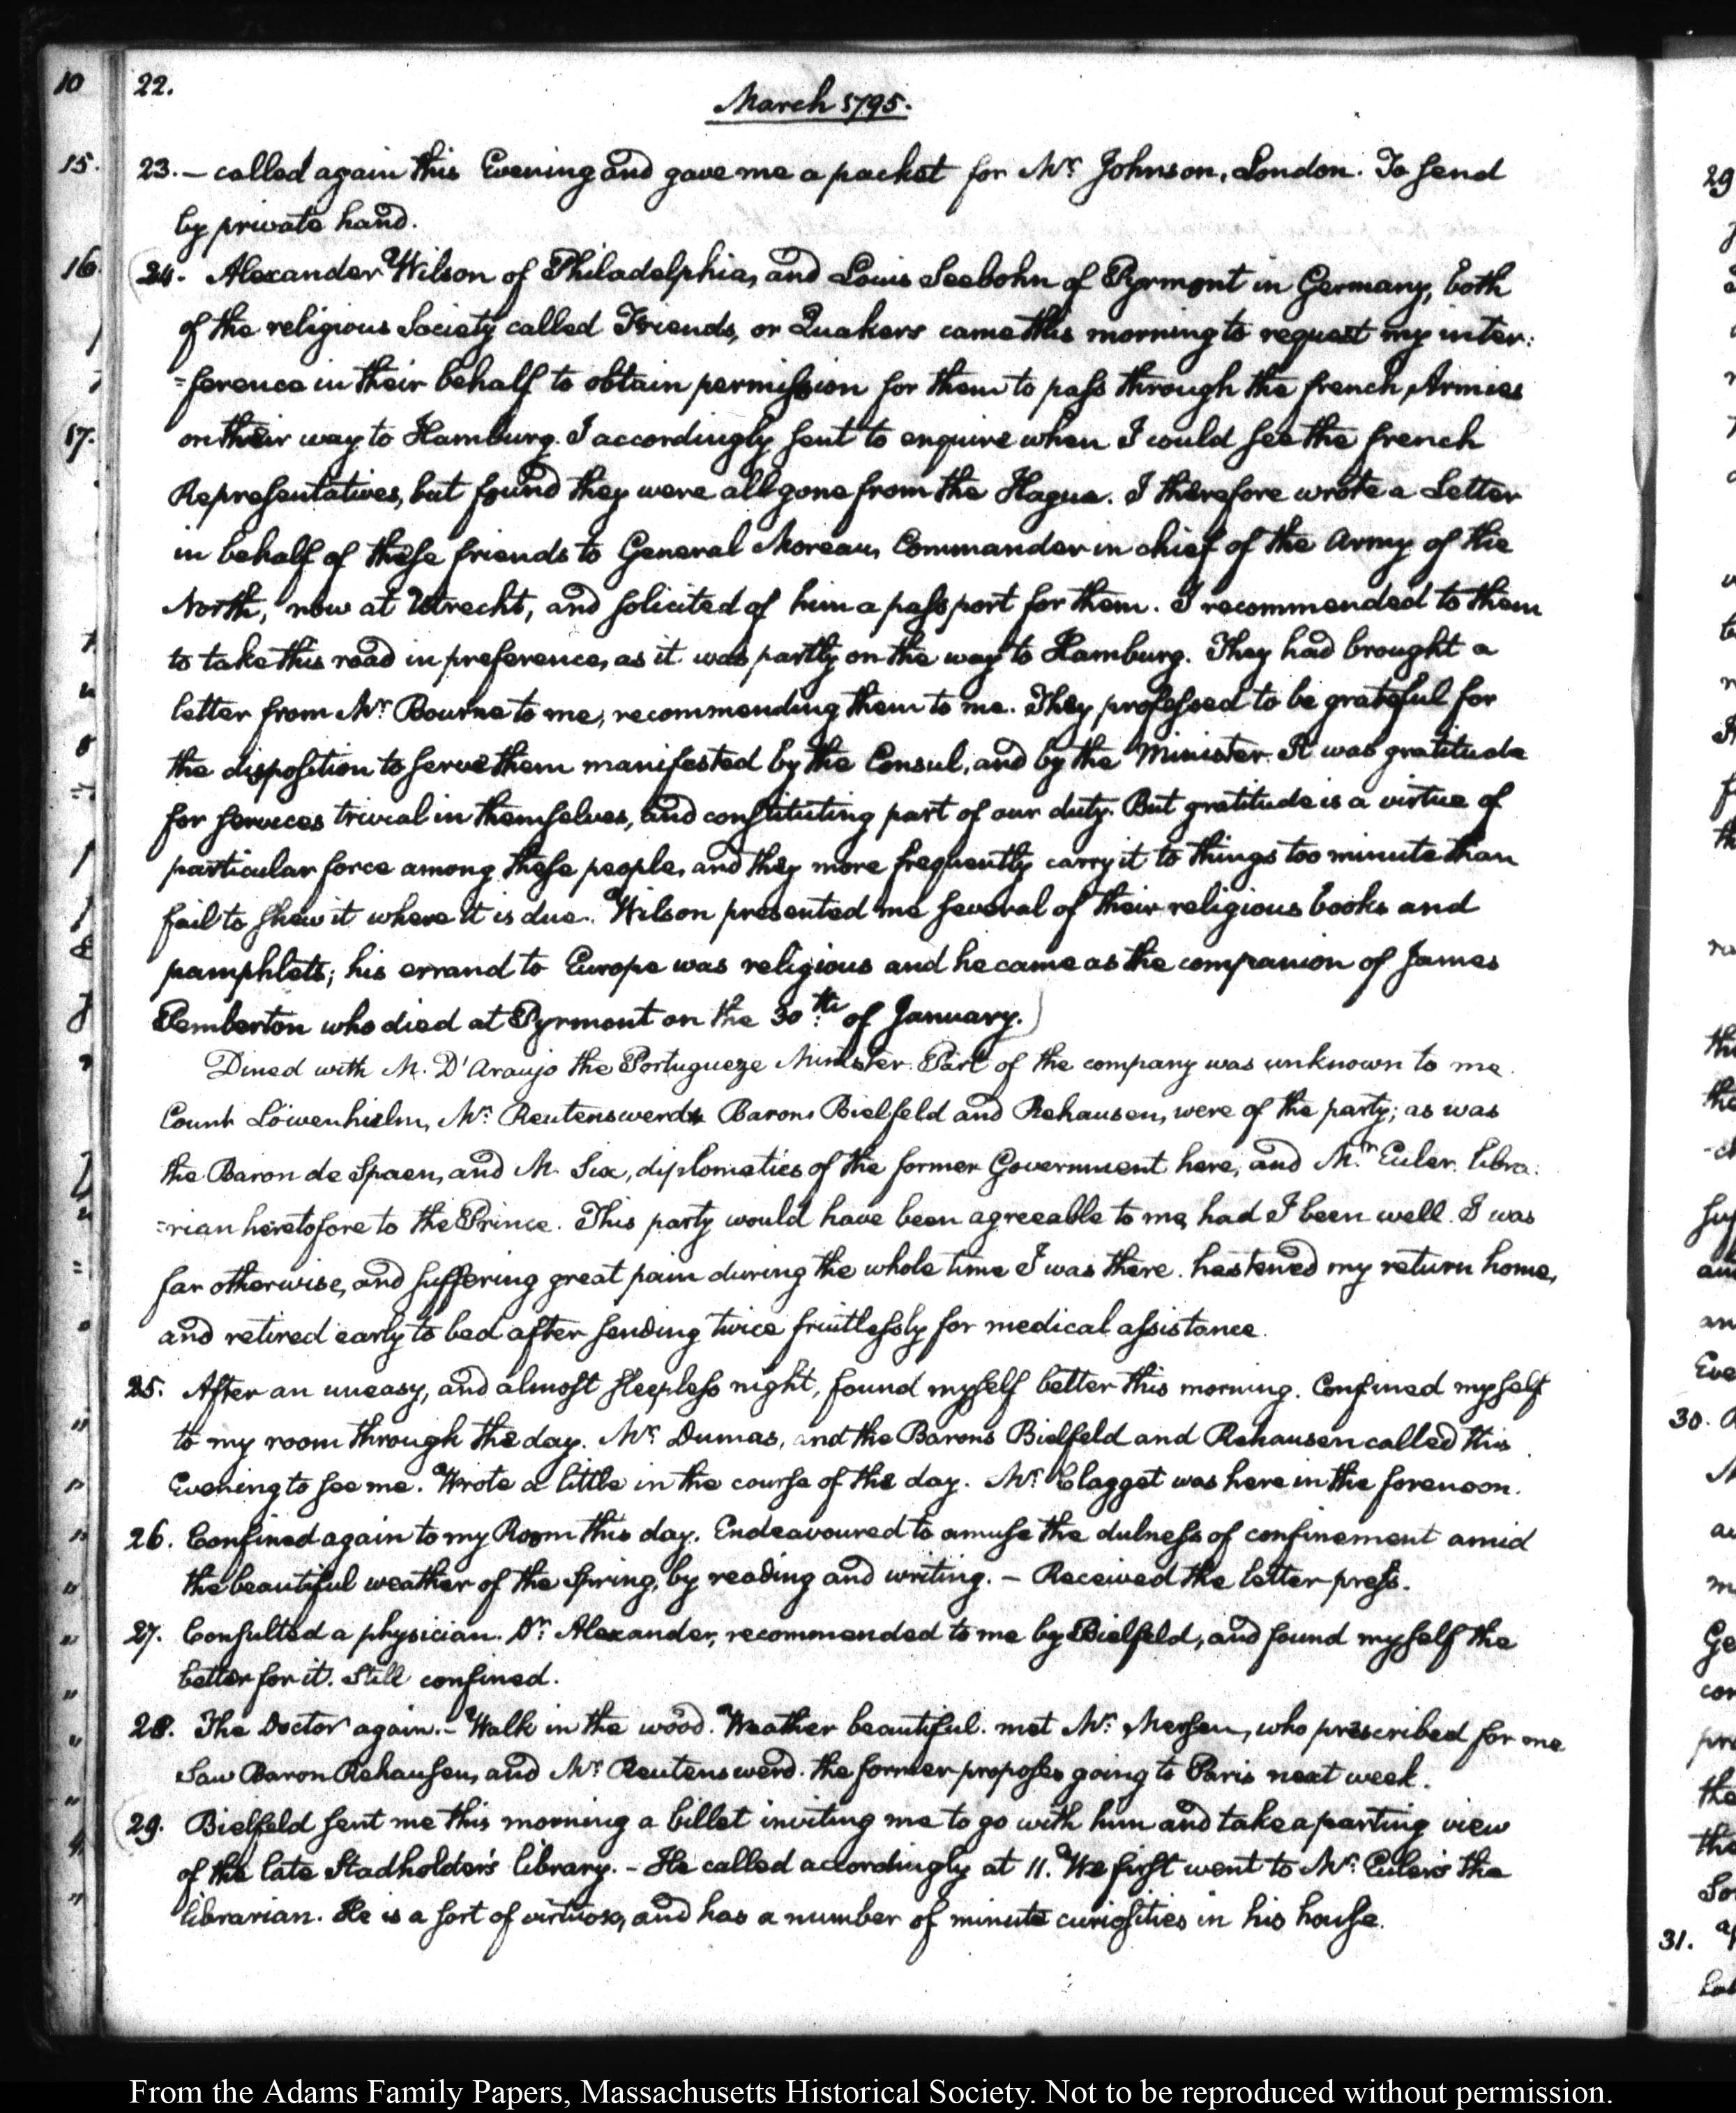 22.
March 1795.
23. – called again this Evening and gave me a packet for Mr. Johnson, London. To send
by private hand.
24. Alexander Wilson of Philadelphia, and Louis Seebohn of Pyrmont in Germany, both
of the religious Society called Friends, or Quakers came this morning to request my inter:
=ference in their behalf to obtain permission for them to pass through the french Armies
on their way to Hamburg. I accordingly sent to enquire when I could see the french
Representatives, but found they were all gone from the Hague. I therefore wrote a Letter
in behalf of these friends to General Moreau, Commander in chief of the Army of the
North, now at Utrecht, and solicited of him a passport for them. I recommended to them
to take this road in preference, as it was partly on the way to Hamburg. They had brought a
letter from Mr. Bourne to me, recommending them to me. They professed to be grateful for
the disposition to serve them manifested by the Consul, and by the Minister. It was gratitude
for services trivial in themselves, and constituting part of our duty. But gratitude is a virtue of
particular force among these people, and they more frequently carry it to things too minute than
fail to shew it where it is due. Wilson presented me several of their religious books and
pamphlets; his errand to Europe was religious and he came as the companion of James
Pemberton who died at Pyrmont on the 30th. of January.)
Dined with M. D'Araujo the Portugueze Minister. Part of the company was unknown to me.
Count Löwenhielm, Mr. Reutenswerd, Barons Bielfeld and Rehausen, were of the party; as was
the Baron de Spaen, and M. Six, diplomatics of the former Government here, and Mr. Euler. libra:
=rian heretofore to the Prince. This party would have been agreeable to me, had I been well. I was
far otherwise, and suffering great pain during the whole time I was there. hastened my return home,
and retired early to bed after sending twice fruitlessly for medical assistance.
25. After an uneasy, and almost sleepless night, found myself better this morning. Confined myself
to my room through the day. Mr. Dumas, and the Barons Bielfeld and Rehausen called this
Evening to see me. Wrote a little in the course of the day. Mr. Clagget was here in the forenoon.
26. Confined again to my Room this day. Endeavoured to amuse the dulness of confinement amid
the beautiful weather of the Spring, by reading and writing. – Received the letter press.
27. Consulted a physician. Dr. Alexander, recommended to me by Bielfeld, and found myself the
better for it. Still confined.
28. The Doctor again. – Walk in the wood. Weather beautiful. met Mr. Mersen, who prescribed for me
Saw Baron Rehausen, and Mr. Reutenswerd. the former proposes going to Paris next week.
29. Bielfeld sent me this morning a billet inviting me to go with him and take a parting view
of the late Stadholder's library. – He called accordingly at 11. We first went to Mr. Euler's the
librarian. He is a sort of virtuoso, and has a number of minute curiosities in his house.
From the Adams Family Papers, Massachusetts Historical Society. Not to be reproduced without permission.